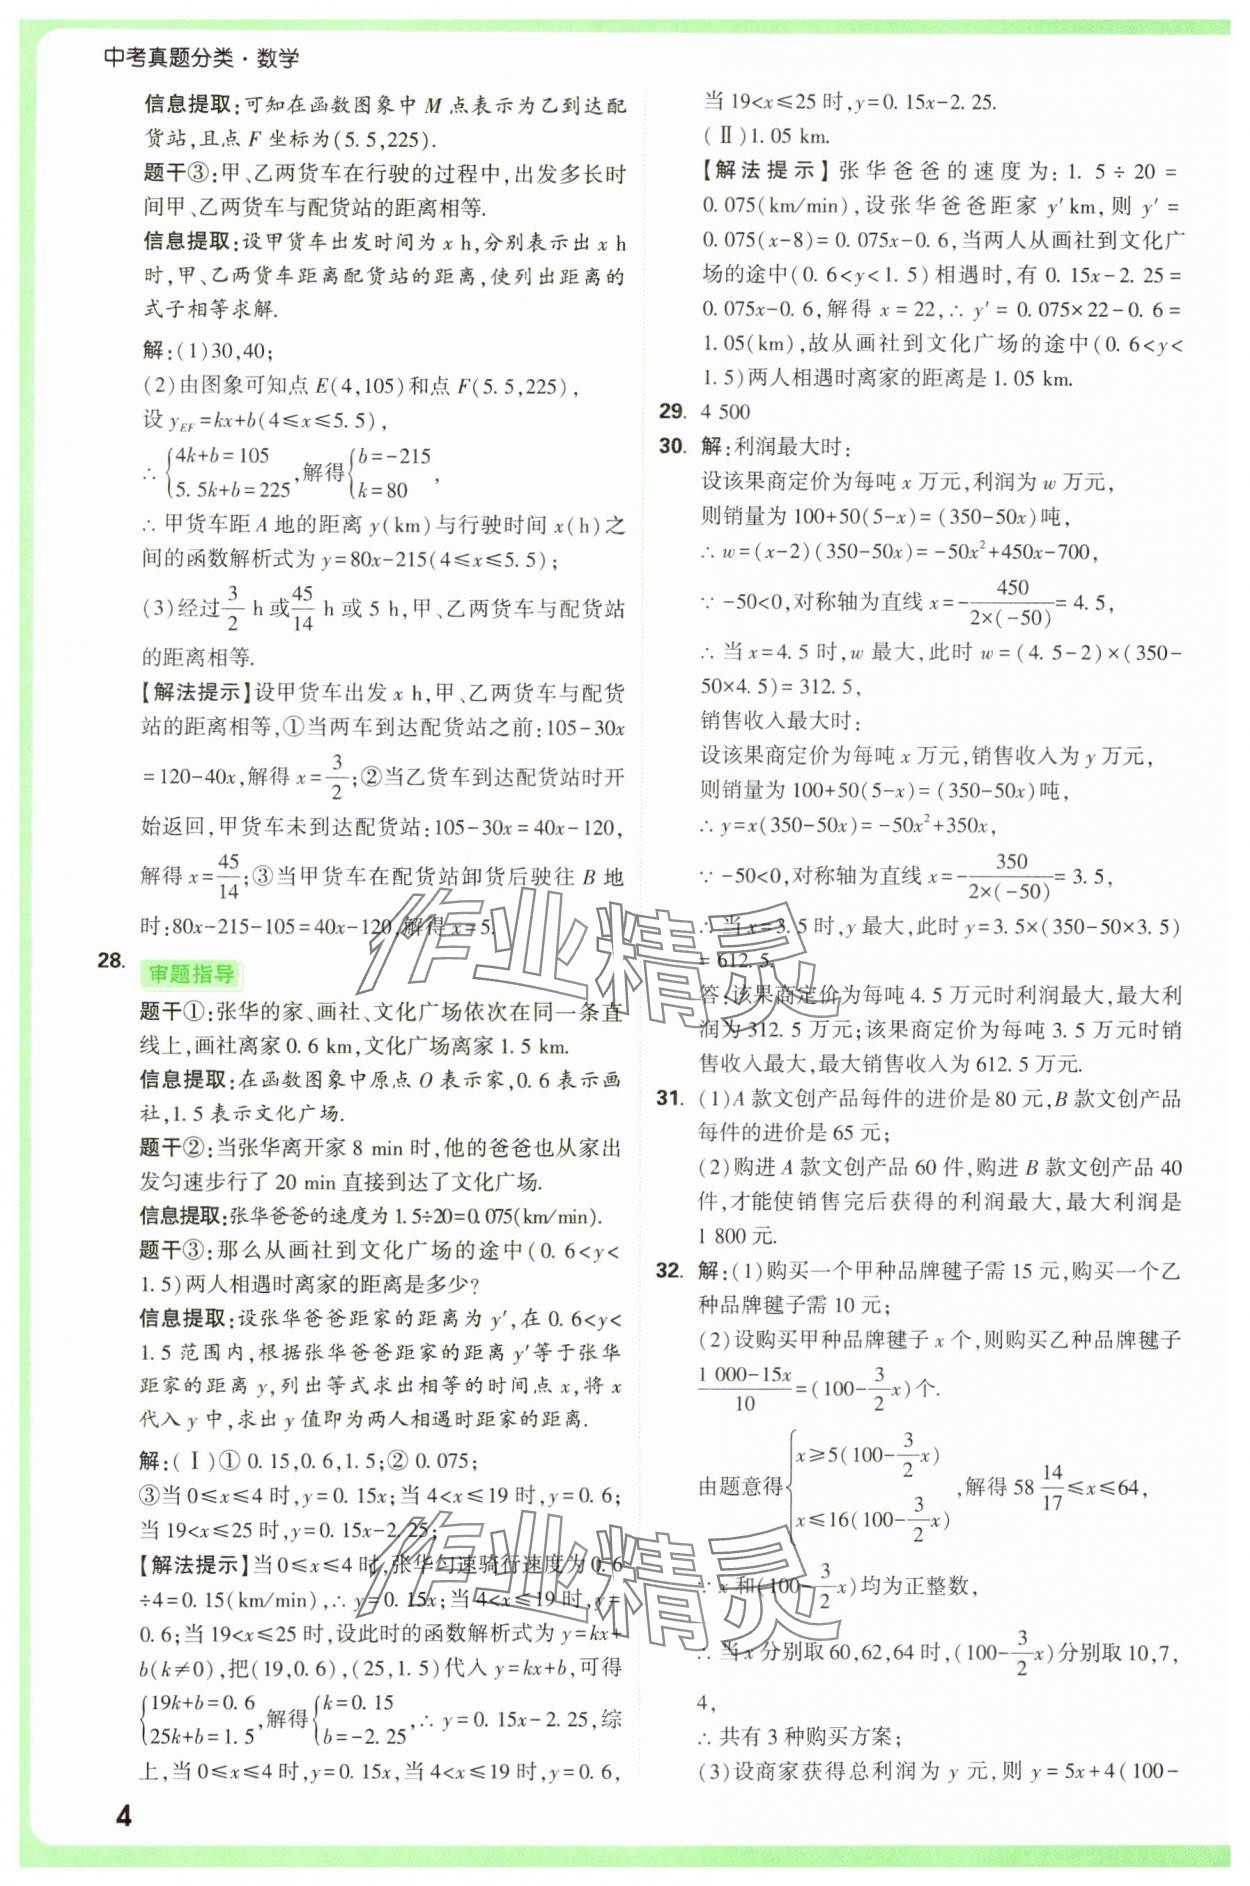 中考真题分类·数学
信息提取:可知在函数图象中 M 点表示为乙到达配
货站,且点 F 坐标为(5.5,225).
题干③:甲、乙两货车在行驶的过程中,出发多长时
间甲、乙两货车与配货站的距离相等.
信息提取:设甲货车出发时间为 x h,分别表示出 x h
时,甲、乙两货车距离配货站的距离,使列出距离的
式子相等求解.
解:(1)30,40;
(2)由图象可知点 E(4,105)和点 F(5.5,225),
设 y_EF=kx+b(4≤x≤5.5),
∴ {4k+b=105, 5.5k+b=225 ,解得 {b=-215, k=80 ,
∴ 甲货车距 A 地的距离 y(km)与行驶时间 x(h)之
间的函数解析式为 y=80x-215(4≤x≤5.5);
(3)经过 3/2 h 或 45/14 h 或 5 h,甲、乙两货车与配货站
的距离相等.
【解法提示】设甲货车出发 x h,甲、乙两货车与配货
站的距离相等,①当两车到达配货站之前:105-30x
=120-40x,解得 x=3/2;②当乙货车到达配货站时开
始返回,甲货车未到达配货站:105-30x=40x-120,
解得 x=45/14;③当甲货车在配货站卸货后驶往 B 地
时:80x-215-105=40x-120,解得 x=5.
28. 审题指导
题干①:张华的家、画社、文化广场依次在同一条直
线上,画社离家 0.6 km,文化广场离家 1.5 km.
信息提取:在函数图象中原点 O 表示家,0.6 表示画
社,1.5 表示文化广场.
题干②:当张华离开家 8 min 时,他的爸爸也从家出
发匀速步行了 20 min 直接到达了文化广场.
信息提取:张华爸爸的速度为 1.5÷20=0.075(km/min).
题干③:那么从画社到文化广场的途中(0.6<y<
1.5)两人相遇时离家的距离是多少?
信息提取:设张华爸爸距家的距离为 y′,在 0.6<y<
1.5 范围内,根据张华爸爸距家的距离 y′等于张华
距家的距离 y,列出等式求出相等的时间点 x,将 x
代入 y 中,求出 y 值即为两人相遇时距家的距离.
解:(Ⅰ)① 0.15,0.6,1.5;② 0.075;
③当 0≤x≤4 时,y=0.15x;当 4<x≤19 时,y=0.6;
当 19<x≤25 时,y=0.15x-2.25;
【解法提示】当 0≤x≤4 时,张华匀速骑行速度为 0.6
÷4=0.15(km/min),∴ y=0.15x;当 4<x≤19 时,y=
0.6;当 19<x≤25 时,设此时的函数解析式为 y=kx+
b(k≠0),把(19,0.6),(25,1.5)代入 y=kx+b,可得
{19k+b=0.6, 25k+b=1.5 ,解得 {k=0.15, b=-2.25 ,∴ y=0.15x-2.25,综
上,当 0≤x≤4 时,y=0.15x,当 4<x≤19 时,y=0.6,
4
当 19<x≤25 时,y=0.15x-2.25.
(Ⅱ)1.05 km.
【解法提示】张华爸爸的速度为:1.5÷20=
0.075(km/min),设张华爸爸距家 y′km,则 y′=
0.075(x-8)=0.075x-0.6,当两人从画社到文化广
场的途中(0.6<y<1.5)相遇时,有 0.15x-2.25=
0.075x-0.6,解得 x=22,∴ y′=0.075×22-0.6=
1.05(km),故从画社到文化广场的途中(0.6<y<
1.5)两人相遇时离家的距离是 1.05 km.
29. 4 500
30. 解:利润最大时:
设该果商定价为每吨 x 万元,利润为 w 万元,
则销量为 100+50(5-x)=(350-50x)吨,
∴ w=(x-2)(350-50x)=-50x²+450x-700,
∵ -50<0,对称轴为直线 x=-450/(2×(-50))=4.5,
∴ 当 x=4.5 时,w 最大,此时 w=(4.5-2)×(350-
50×4.5)=312.5,
销售收入最大时:
设该果商定价为每吨 x 万元,销售收入为 y 万元,
则销量为 100+50(5-x)=(350-50x)吨,
∴ y=x(350-50x)=-50x²+350x,
∵ -50<0,对称轴为直线 x=-350/(2×(-50))=3.5,
∴ 当 x=3.5 时,y 最大,此时 y=3.5×(350-50×3.5)
=612.5.
答:该果商定价为每吨 4.5 万元时利润最大,最大利
润为 312.5 万元;该果商定价为每吨 3.5 万元时销
售收入最大,最大销售收入为 612.5 万元.
31. (1)A 款文创产品每件的进价是 80 元,B 款文创产品
每件的进价是 65 元;
(2)购进 A 款文创产品 60 件,购进 B 款文创产品 40
件,才能使销售完后获得的利润最大,最大利润是
1 800 元.
32. 解:(1)购买一个甲种品牌毽子需 15 元,购买一个乙
种品牌毽子需 10 元;
(2)设购买甲种品牌毽子 x 个,则购买乙种品牌毽子
(1 000-15x)/10=(100-3/2x)个.
由题意得 {x≥5(100-3/2x), x≤16(100-3/2x) ,解得 58 14/17≤x≤64,
∵ x 和(100-3/2x)均为正整数,
∴ 当 x 分别取 60,62,64 时,(100-3/2x)分别取 10,7,
4,
∴ 共有 3 种购买方案;
(3)设商家获得总利润为 y 元,则 y=5x+4(100-
作业精灵
作业精灵